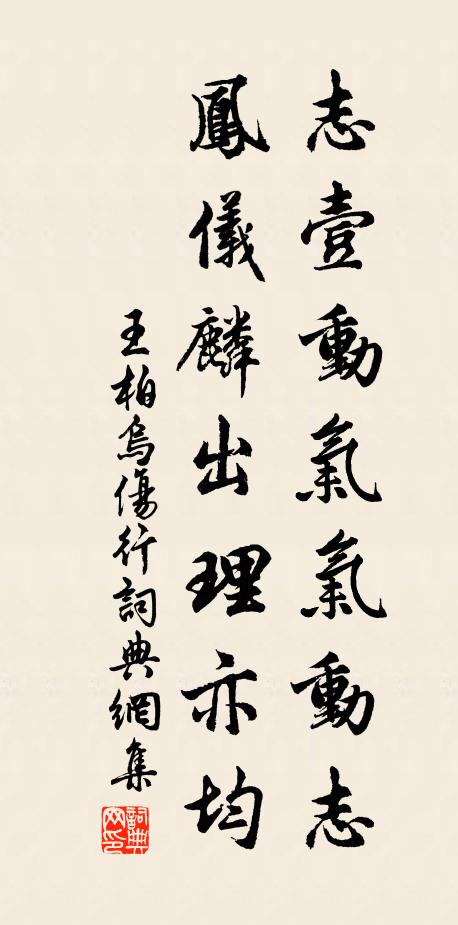 志壹動氣氣動志
鳳儀麟出理亦均
王柏烏傷行詞典網集
詞典網印